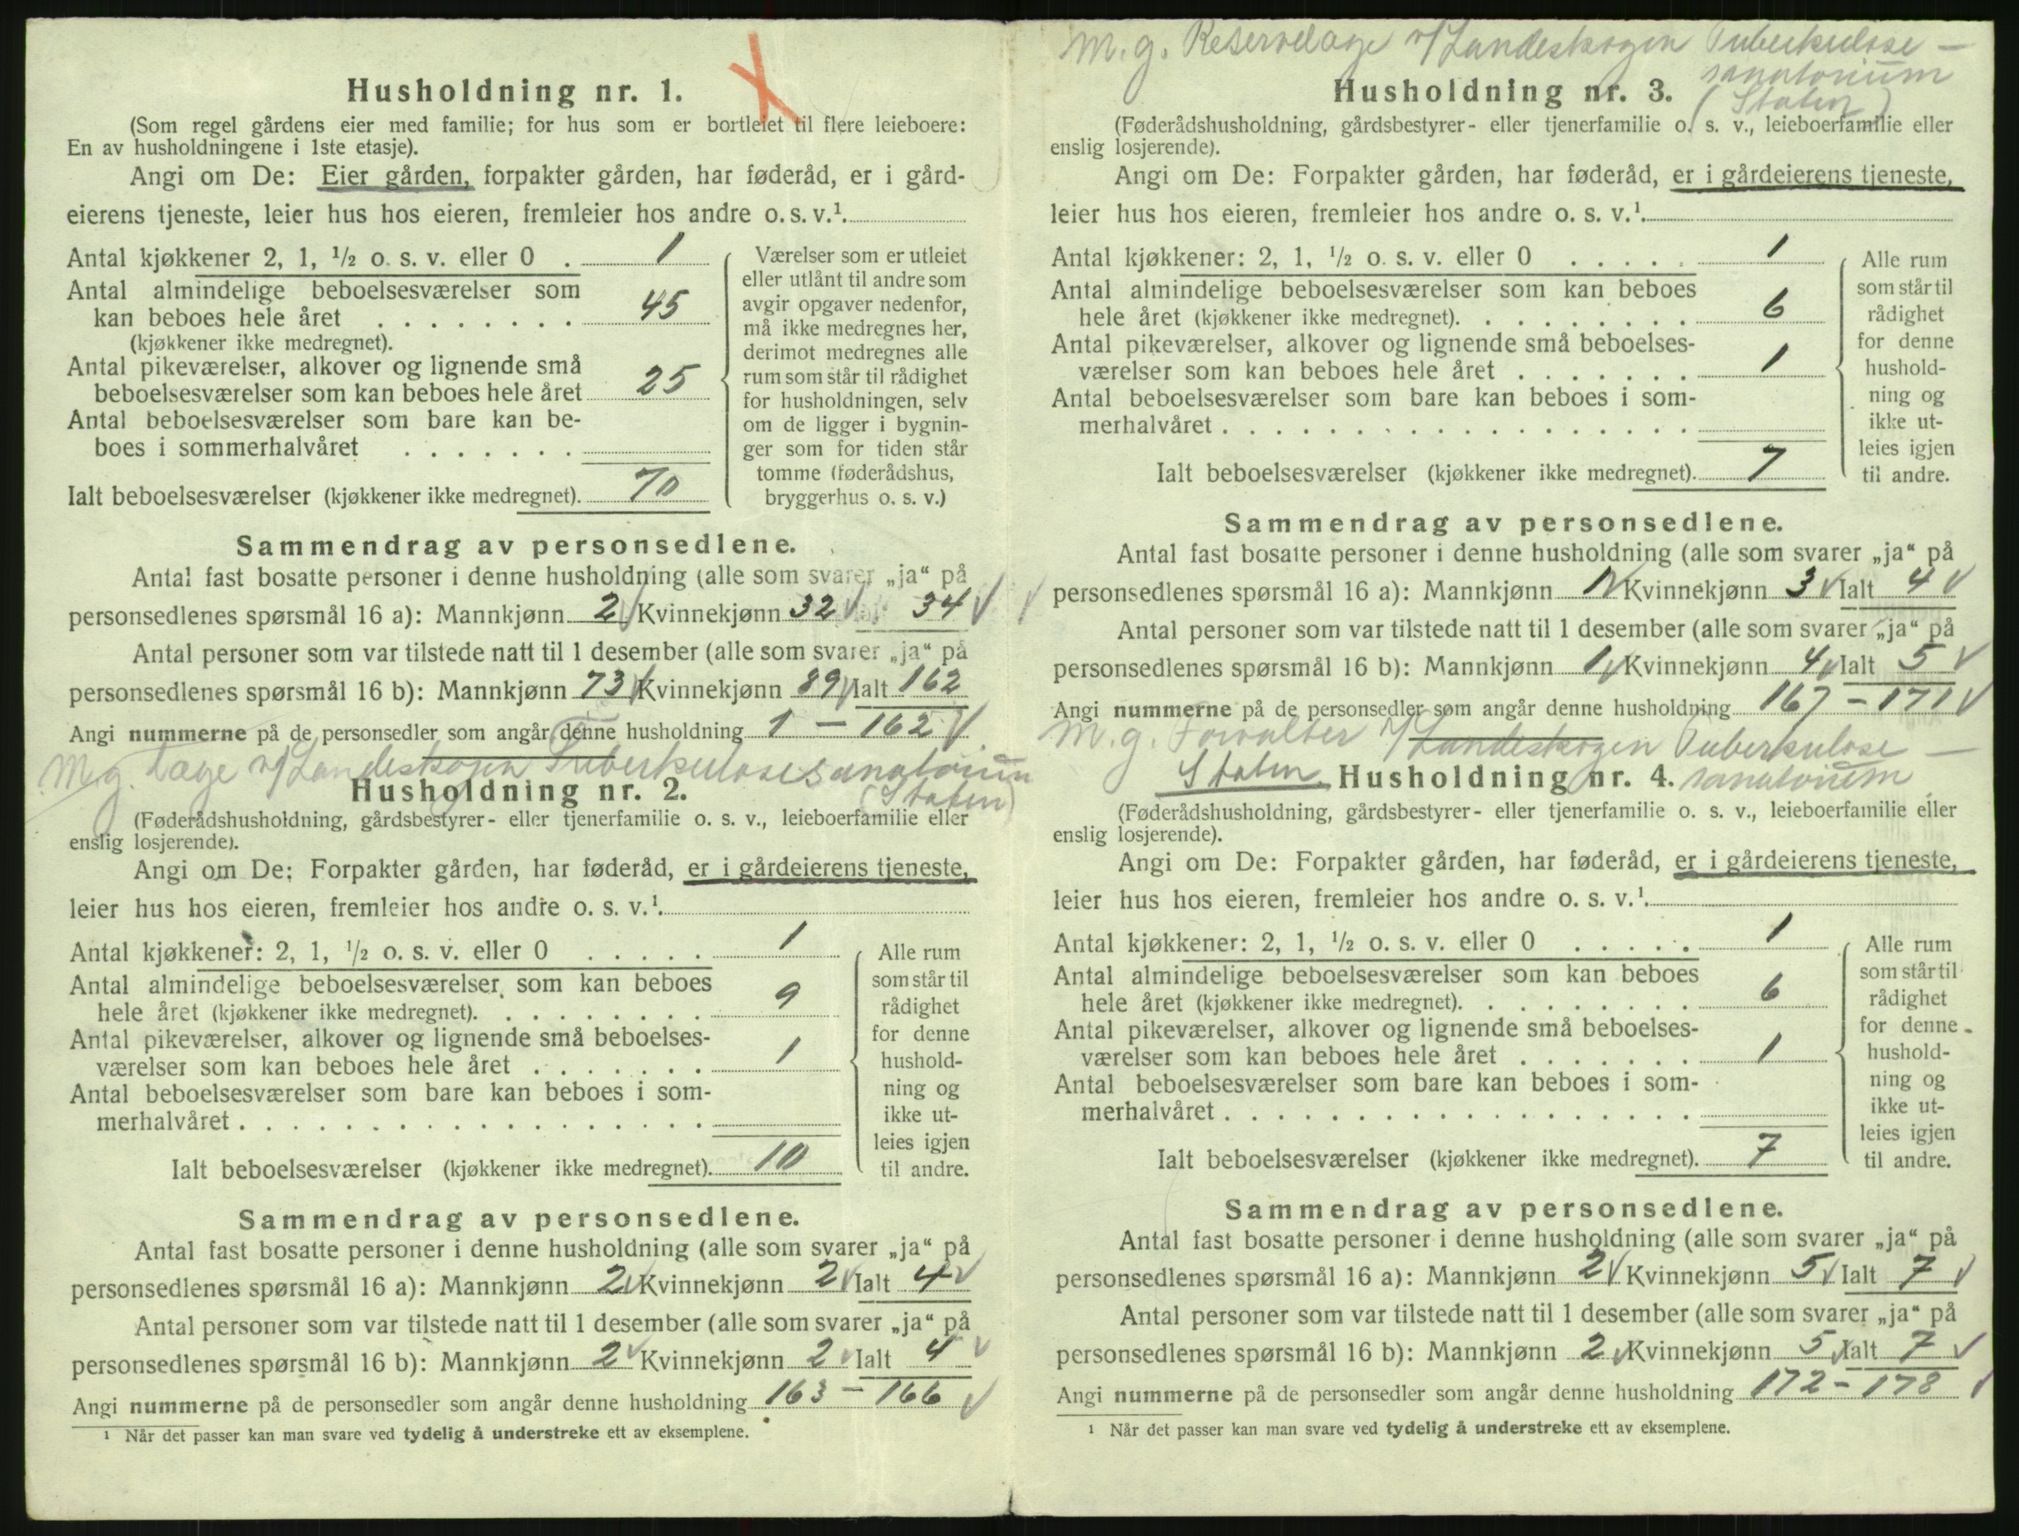 Husholdning nr. 1.
(Som regel gårdens eier med familie; for hus som er bortleiet til flere leieboere:
En av husholdningene i 1ste etasje).
Angi om De: Eier gården, forpakter gården, har føderåd, er i gård-
eierens tjeneste, leier hus hos eieren, fremleier hos andre o. s. v.¹
Antal kjøkkener 2, 1, ½ o. s. v. eller 0 . 1
Antal almindelige beboelsesværelser som
kan beboes hele året . . . . . . . . 45
(kjøkkener ikke medregnet).
Antal pikeværelser, alkover og lignende små
beboelsesværelser som kan beboes hele året 25
Antal beboelsesværelser som bare kan be-
boes i sommerhalvåret . . . . . . .
Ialt beboelsesværelser (kjøkkener ikke medregnet). 70
Værelser som er utleiet
eller utlånt til andre som
avgir opgaver nedenfor,
må ikke medregnes her,
derimot medregnes alle
rum som står til rådighet
for husholdningen, selv
om de ligger i bygnin-
ger som for tiden står
tomme (føderådshus,
bryggerhus o. s. v.)
Sammendrag av personsedlene.
Antal fast bosatte personer i denne husholdning (alle som svarer „ja“ på
personsedlenes spørsmål 16 a): Mannkjønn 2 Kvinnekjønn 32 Ialt 34
Antal personer som var tilstede natt til 1 desember (alle som svarer „ja“ på
personsedlenes spørsmål 16 b): Mannkjønn 73 Kvinnekjønn 89 Ialt 162
Angi nummerne på de personsedler som angår denne husholdning 1 — 162
M.g. Læge v/Landeskogen Tuberkulosesanatorium
(Staten)
Husholdning nr. 2.
(Føderådshusholdning, gårdsbestyrer- eller tjenerfamilie o. s. v., leieboerfamilie eller
enslig losjerende).
Angi om De: Forpakter gården, har føderåd, er i gårdeierens tjeneste,
leier hus hos eieren, fremleier hos andre o. s. v.¹
Antal kjøkkener: 2, 1, ½ o. s. v. eller 0 . . . . . 1
Antal almindelige beboelsesværelser som kan beboes
hele året (kjøkkener ikke medregnet). . . . . . . . . 9
Antal pikeværelser, alkover og lignende små beboelses-
værelser som kan beboes hele året . . . . . . . 1
Antal beboelsesværelser som bare kan beboes i som-
merhalvåret . . . . . . . . . . . . . . . . . .
Ialt beboelsesværelser (kjøkkener ikke medregnet). 10
Alle rum
som står til
rådighet
for denne
hushold-
ning og
ikke ut-
leies igjen
til andre.
Sammendrag av personsedlene.
Antal fast bosatte personer i denne husholdning (alle som svarer „ja“ på
personsedlenes spørsmål 16 a): Mannkjønn 2 Kvinnekjønn 2 Ialt 4
Antal personer som var tilstede natt til 1 desember (alle som svarer „ja“ på
personsedlenes spørsmål 16 b): Mannkjønn 2 Kvinnekjønn 2 Ialt 4
Angi nummerne på de personsedler som angår denne husholdning 163 — 166
¹ Når det passer kan man svare ved tydelig å understreke ett av eksemplene.
M.g. Reservelæge v/Landeskogen Tuberkulose —
sanatorium
Husholdning nr. 3. (Staten)
(Føderådshusholdning, gårdsbestyrer- eller tjenerfamilie o. s. v., leieboerfamilie eller
enslig losjerende).
Angi om De: Forpakter gården, har føderåd, er i gårdeierens tjeneste,
leier hus hos eieren, fremleier hos andre o. s. v.¹
Antal kjøkkener: 2, 1, ½ o. s. v. eller 0 . . . . . 1
Antal almindelige beboelsesværelser som kan beboes
hele året (kjøkkener ikke medregnet). . . . . . . . . 6
Antal pikeværelser, alkover og lignende små beboelses-
værelser som kan beboes hele året . . . . . . . 1
Antal beboelsesværelser som bare kan beboes i som-
merhalvåret . . . . . . . . . . . . . . . . . .
Ialt beboelsesværelser (kjøkkener ikke medregnet). 7
Alle rum
som står til
rådighet
for denne
hushold-
ning og
ikke ut-
leies igjen
til andre.
Sammendrag av personsedlene.
Antal fast bosatte personer i denne husholdning (alle som svarer „ja“ på
personsedlenes spørsmål 16 a): Mannkjønn 1 Kvinnekjønn 3 Ialt 4
Antal personer som var tilstede natt til 1 desember (alle som svarer „ja“ på
personsedlenes spørsmål 16 b): Mannkjønn 1 Kvinnekjønn 4 Ialt 5
Angi nummerne på de personsedler som angår denne husholdning 167 — 171
M.g. Forvalter v/Landeskogen Tuberkulose —
Staten Husholdning nr. 4. sanatorium
(Føderådshusholdning, gårdsbestyrer- eller tjenerfamilie o. s. v., leieboerfamilie eller
enslig losjerende).
Angi om De: Forpakter gården, har føderåd, er i gårdeierens tjeneste,
leier hus hos eieren, fremleier hos andre o. s. v.¹
Antal kjøkkener: 2, 1, ½ o. s. v. eller 0 . . . . . 1
Antal almindelige beboelsesværelser som kan beboes
hele året (kjøkkener ikke medregnet). . . . . . . . . 6
Antal pikeværelser, alkover og lignende små beboelses-
værelser som kan beboes hele året . . . . . . . 1
Antal beboelsesværelser som bare kan beboes i som-
merhalvåret . . . . . . . . . . . . . . . . . .
Ialt beboelsesværelser (kjøkkener ikke medregnet). 7
Alle rum
som står til
rådighet
for denne
hushold-
ning og
ikke ut-
leies igjen
til andre.
Sammendrag av personsedlene.
Antal fast bosatte personer i denne husholdning (alle som svarer „ja“ på
personsedlenes spørsmål 16 a): Mannkjønn 2 Kvinnekjønn 5 Ialt 7
Antal personer som var tilstede natt til 1 desember (alle som svarer „ja“ på
personsedlenes spørsmål 16 b): Mannkjønn 2 Kvinnekjønn 5 Ialt 7
Angi nummerne på de personsedler som angår denne husholdning 172 — 178
¹ Når det passer kan man svare ved tydelig å understreke ett av eksemplene.